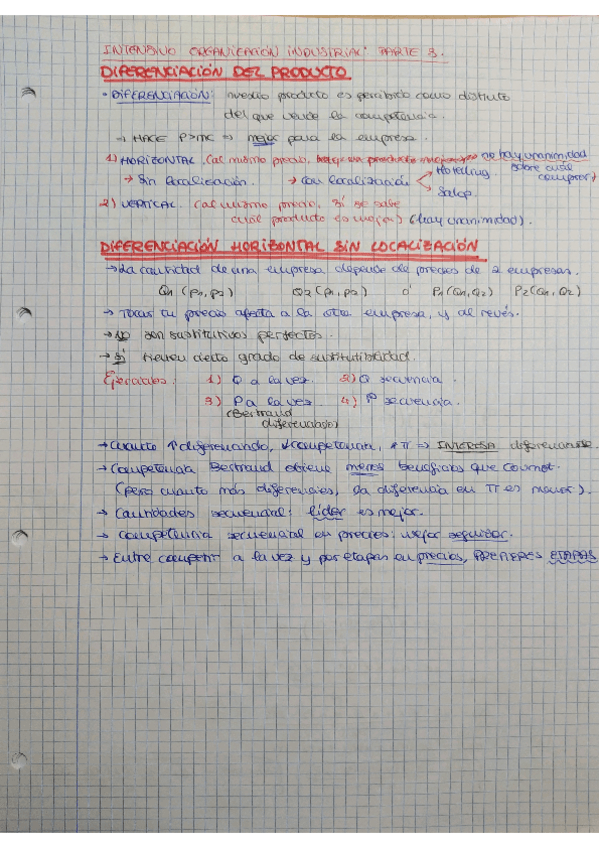 INTENSIVO ORGANIZACIÓN INDUSTRIAL: PARTE 3.
DIFERENCIACIÓN DEL PRODUCTO
• DIFERENCIACIÓN: nuestro producto es percibido como distinto
del que vende la competencia.
→ HACE P>MC ⇒ mejor para la empresa.
1) HORIZONTAL (al mismo precio, no hay unanimidad
sobre cuál comprar)
→ Sin localización. → Con localización Hotelling
Salop.
2) VERTICAL (al mismo precio, sí se sabe
cual producto es mejor) (hay unanimidad).
DIFERENCIACIÓN HORIZONTAL SIN LOCALIZACIÓN
→ La cantidad de una empresa depende de precios de 2 empresas.
Q1 (p1, p2) Q2 (p1, p2) ó P1(Q1, Q2) P2(Q1, Q2)
→ Tocar tu precio afecta a la otra empresa, y al revés.
→ No son sustitutivos perfectos.
→ Sí tienen cierto grado de sustitutibilidad.
Ejercicios: 1) Q a la vez. 2) Q secuencia.
3) P a la vez 4) P secuencia.
(Bertrand
diferenciado)
→ Cuanto ↑ diferenciando, ↓ competencia, ↑ π ⇒ INTERESA diferenciarse.
→ Competencia Bertrand obtiene menos beneficios que Cournot.
(pero cuanto más diferencies, la diferencia en π es menor).
→ Cantidades secuencial: líder es mejor.
→ Competencia secuencial en precios: mejor seguidor.
→ Entre competir a la vez y por etapas en precios, PREFIERES ETAPAS